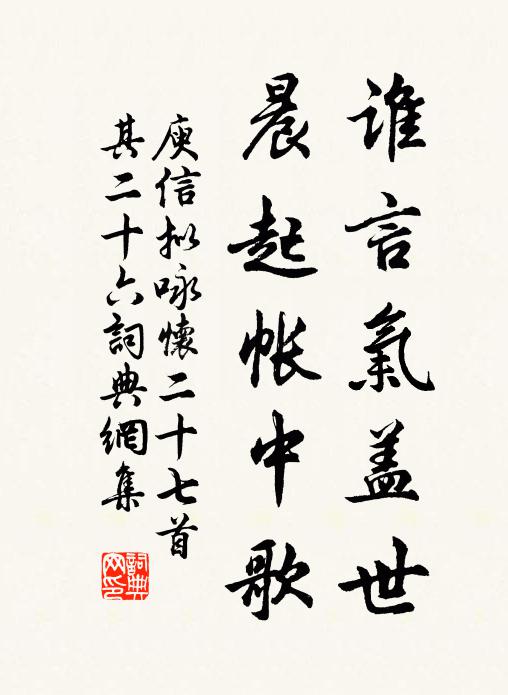 谁言氣盖世
晨起帐中歌
庾信拟咏懷二十七首
其二十六詞典網集
詞典
网印